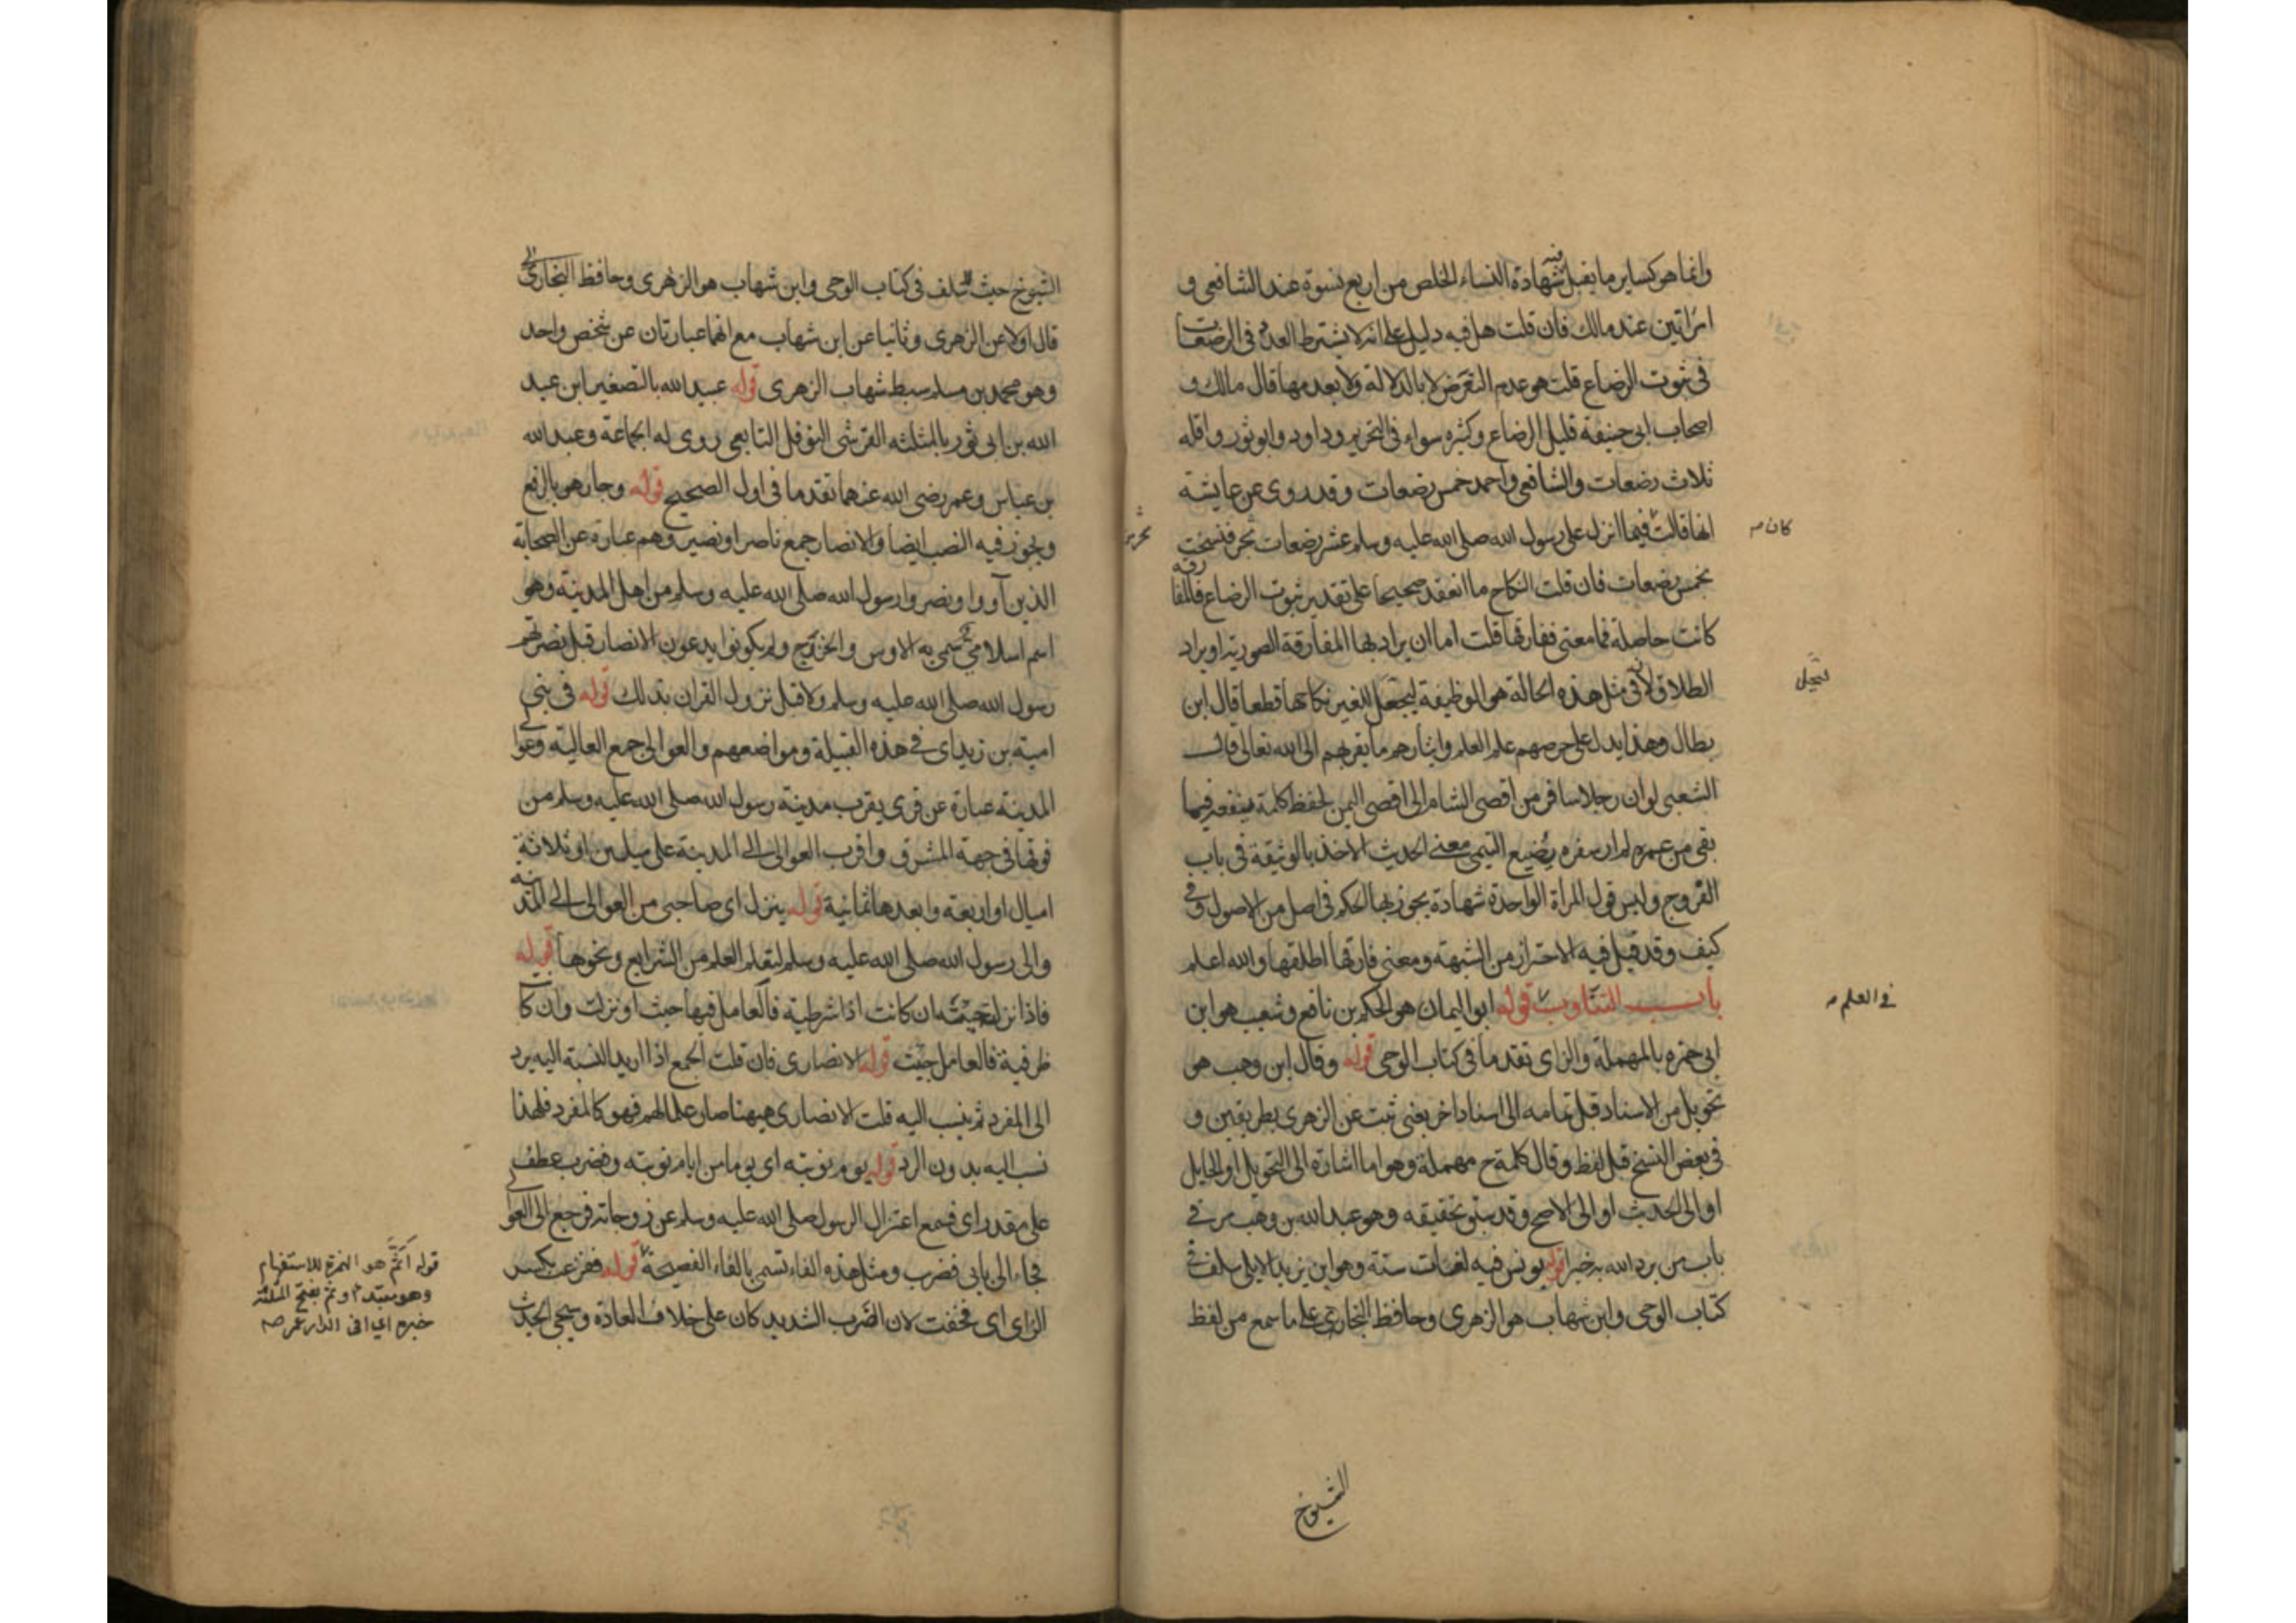 وانما هو كساير ما يقبل فيه شهادة النساء الخلص من اربع نسوة عند الشافعى و
امراتين عند مالك فان قلت هل فيه دليل على انه لا يشترط العدد فى الرضعات
فى ثبوت الرضاع قلت هو عدم التعرض لا بالدلالة ولا بعدمها قال مالك و
اصحاب ابى حنيفة قليل الرضاع وكثيره سواء فى التحريم وداود وابو ثور واقله
ثلاث رضعات والشافعى واحمد خمس رضعات وقد روى عن عايشة
انها قالت فيما انزل على رسول الله صلى الله عليه وسلم عشر رضعات تحرم فنسخت
كان
تحرمن
بخمس رضعات فان قلت النكاح ما انعقد صحيحا على تقدير ثبوت الرضاع فالمفارقة
كانت حاصلة فما معنى ففارقها قلت اما ان يراد بها المفارقة الصورية او يراد
الطلاق لانه فى مثل هذه الحالة هو الوظيفة ليجعل للغير نكاحها قطعا قال ابن
ليحل
بطال وهذا يدل على حرصهم على العلم وايثارهم ما يقربهم الى الله تعالى قال
الشعبى لو ان رجلا سافر من اقصى الشام الى اقصى اليمن لحفظ كلمة ينفعه فيما
بقى من عمره لم ار سفره يضيع التيمى معنى الحديث الاخذ بالوثيقة فى باب
الفروج وليس قول المراة الواحدة شهادة يجوز بها الحكم فى اصل من الاصول وفى
كيف وقد قيل فيه الاحتراز من الشبهة ومعنى فارقها اطلقها والله اعلم
باب التناوب قوله ابو اليمان هو الحكم بن نافع وشعيب هو ابن
فى العلم
ابى حمزه بالمهملة والزاى تقدما فى كتاب الوحى قوله وقال ابن وهب هو
تحويل من الاسناد قبل تمامه الى اسناد اخر يعنى ثبت عن الزهرى بطريقين و
فى بعض النسخ قبل لفظ وقال كلمة ح مهملة وهو اما اشارة الى التحويل او الحايل
او الى الحديث او الى الاصح وقد سبق تحقيقه وهو عبد الله بن وهب مر فى
باب من يرد الله به خيرا قوله يونس فيه لغات ستة وهو ابن يزيد الايلى سلف فى
كتاب الوحى وابن شهاب هو الزهرى وحافظ البخارى على ما سمع من لفظ
الشيوخ
الشيوخ حيث سلف فى كتاب الوحى وابن شهاب هو الزهرى وحافظ البخارى
قال اولا عن الزهرى وثانيا عن ابن شهاب مع انهما عبارتان عن شخص واحد
وهو محمد بن مسلم سبط شهاب الزهرى قوله عبيد الله بالتصغير ابن عبد
الله بن ابى ثور بالمثلثه القرشى النوفلى التابعى روى له الجماعة وعبد الله
بن عباس وعمر رضى الله عنهما تقدما فى اول الصحيح قوله وجار هو بالرفع
ويجوز فيه النصب ايضا والانصار جمع ناصر او نصير وهم عبارة عن الصحابة
الذين آووا ونصروا رسول الله صلى الله عليه وسلم من اهل المدينة وهو
اسم اسلامى سمى به الاوس والخزرج ولم يكونوا يدعون الانصار قبل نصرتهم
رسول الله صلى الله عليه وسلم ولا قبل نزول القران بذلك قوله فى بنى
امية بن زيد اى فى هذه القبيلة ومواضعهم والعوالى جمع العالية وعوالى
المدينة عبارة عن قرى بقرب مدينة رسول الله صلى الله عليه وسلم من
فوقها فى جهة المشرق واقرب العوالى الى المدينة على ميلين او ثلاثة
اميال او اربعة وابعدها ثمانية قوله ينزل اى صاحبى من العوالى الى المدينه
والى رسول الله صلى الله عليه وسلم ليتعلم العلم من الشرايع ونحوها قوله
فاذا نزلت جيته ان كانت اذا شرطية فالعامل فيها جيت او نزلت وان كا
ظرفية فالعامل جيت قوله الانصارى فان قلت الجمع اذا اريد النسبة اليه يرد
الى المفرد ثم ينسب اليه قلت الانصارى هيهنا صار علما لهم فهو كالمفرد فلهذا
نسب اليه بدون الرد قوله يوم نوبته اى يوما من ايام نوبته وفضرب عطف
على مقدر اى فسمع اعتزال الرسول صلى الله عليه وسلم عن زوجاته فرجع الى العوالى
فجاء الى بابى فضرب ومثل هذه الفاء تسمى بالفاء الفصيحة قوله ففزعت بكسر
الزاى اى فخفت لان الضرب الشديد كان على خلاف العادة وسيجى الحديث
قوله أثم هو الهمزة للاستفهام
وهو مبتداء وثم بفتح المثلثة
خبره اى افى الدار عمر صه